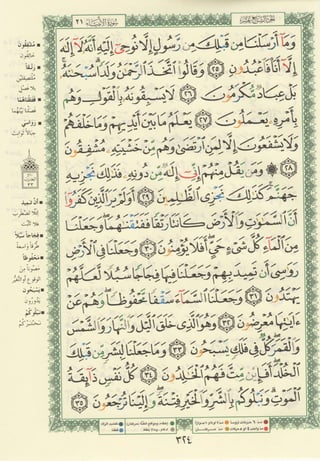 الجزء السابع عشر
سورة الأنبياء ٢١
وَمَآ أَرْسَلْنَا مِن قَبْلِكَ مِن رَّسُولٍ إِلَّا نُوحِىٓ إِلَيْهِ أَنَّهُۥ لَآ إِلَٰهَ
إِلَّآ أَنَا۠ فَٱعْبُدُونِ ٢٥ وَقَالُوا۟ ٱتَّخَذَ ٱلرَّحْمَٰنُ وَلَدًا ۗ سُبْحَٰنَهُۥ ۚ
بَلْ عِبَادٌ مُّكْرَمُونَ ٢٦ لَا يَسْبِقُونَهُۥ بِٱلْقَوْلِ وَهُم
بِأَمْرِهِۦ يَعْمَلُونَ ٢٧ يَعْلَمُ مَا بَيْنَ أَيْدِيهِمْ وَمَا خَلْفَهُمْ
وَلَا يَشْفَعُونَ إِلَّا لِمَنِ ٱرْتَضَىٰ وَهُم مِّنْ خَشْيَتِهِۦ مُشْفِقُونَ
٢٨ ۞ وَمَن يَقُلْ مِنْهُمْ إِنِّىٓ إِلَٰهٌ مِّن دُونِهِۦ فَذَٰلِكَ نَجْزِيهِ
جَهَنَّمَ ۚ كَذَٰلِكَ نَجْزِى ٱلظَّٰلِمِينَ ٢٩ أَوَلَمْ يَرَ ٱلَّذِينَ كَفَرُوٓا۟
أَنَّ ٱلسَّمَٰوَٰتِ وَٱلْأَرْضَ كَانَتَا رَتْقًا فَفَتَقْنَٰهُمَا ۖ وَجَعَلْنَا
مِنَ ٱلْمَآءِ كُلَّ شَىْءٍ حَىٍّ ۖ أَفَلَا يُؤْمِنُونَ ٣٠ وَجَعَلْنَا فِى ٱلْأَرْضِ
رَوَٰسِىَ أَن تَمِيدَ بِهِمْ وَجَعَلْنَا فِيهَا فِجَاجًا سُبُلًا لَّعَلَّهُمْ
يَهْتَدُونَ ٣١ وَجَعَلْنَا ٱلسَّمَآءَ سَقْفًا مَّحْفُوظًا ۖ وَهُمْ عَنْ
ءَايَٰتِهَا مُعْرِضُونَ ٣٢ وَهُوَ ٱلَّذِى خَلَقَ ٱلَّيْلَ وَٱلنَّهَارَ وَٱلشَّمْسَ
وَٱلْقَمَرَ ۖ كُلٌّ فِى فَلَكٍ يَسْبَحُونَ ٣٣ وَمَا جَعَلْنَا لِبَشَرٍ مِّن قَبْلِكَ
ٱلْخُلْدَ ۖ أَفَإِي۟ن مِّتَّ فَهُمُ ٱلْخَٰلِدُونَ ٣٤ كُلُّ نَفْسٍ ذَآئِقَةُ
ٱلْمَوْتِ ۗ وَنَبْلُوكُم بِٱلشَّرِّ وَٱلْخَيْرِ فِتْنَةً ۖ وَإِلَيْنَا تُرْجَعُونَ ٣٥
٣٢٤
مُشْفِقُونَ
خائفون
رتقًا
مُلتصِقتين
بلا فصل
فَفَتَقْنَاهُمَا
رَوَاسِيَ
جبالاً ثوابت